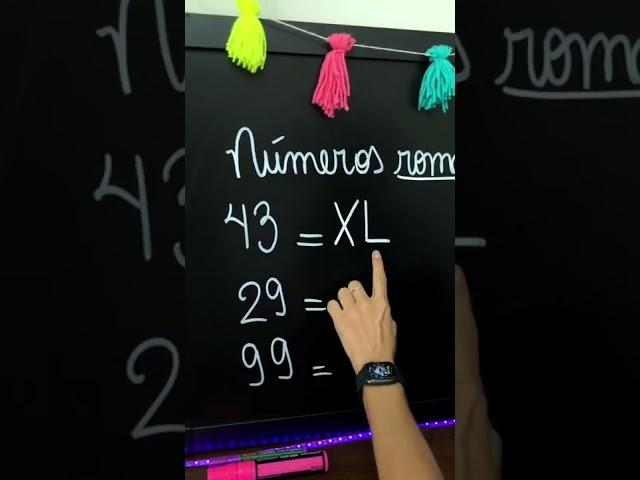 Números rom
43 = XL
29 =
99 =